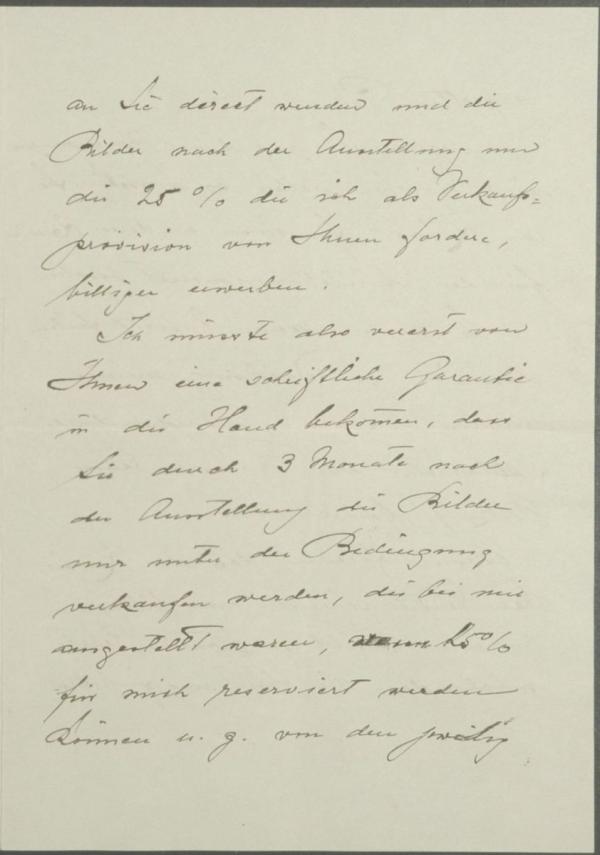 an Sie direct wenden und die
Bilder nach der Ausstellung um
die 25 % die ich als Verkaufs=
provision von Ihnen fordere,
billiger erwerben.
Ich müsste also vorerst von
Ihnen eine schriftliche Garantie
in die Hand bekom̄en, dass
Sie durch 3 Monate nach
der Ausstellung die Bilder
nur unter der Bedingung
verkaufen werden, die bei mir
ausgestellt waren, 25%
für mich reserviert werden
können u. z. von den jeweilig